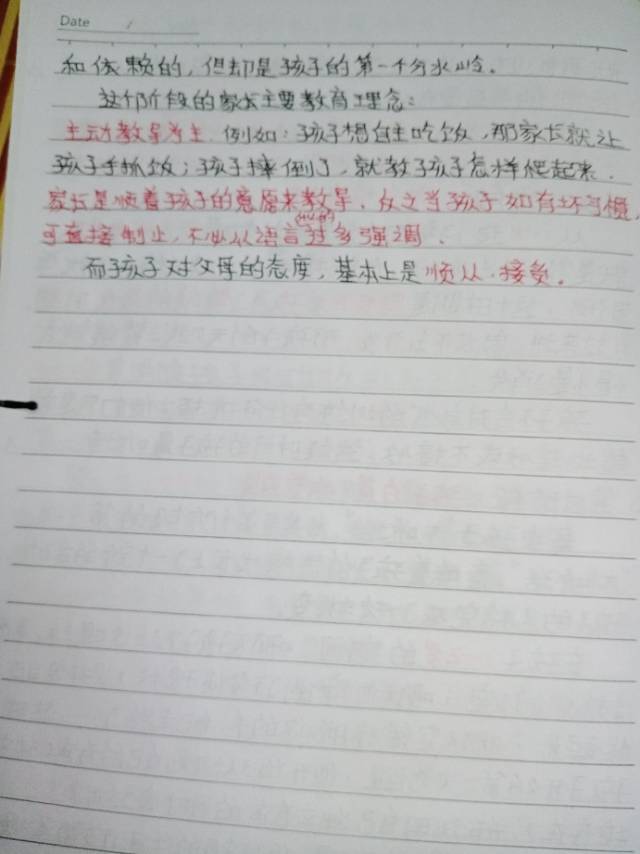 Date
和依赖的，但却是孩子的第一个分水岭。
这个阶段的家长主要教育理念：
主动教导为主. 例如：孩子想自主吃饭，那家长就让
孩子手抓饭；孩子摔倒了，就教子孩子怎样爬起来.
家长是顺着孩子的意愿来教导，反之当孩子如有坏习惯，
可直接制止，不必从语言过多强调.
而孩子对父母的态度，基本上是顺从·接受。